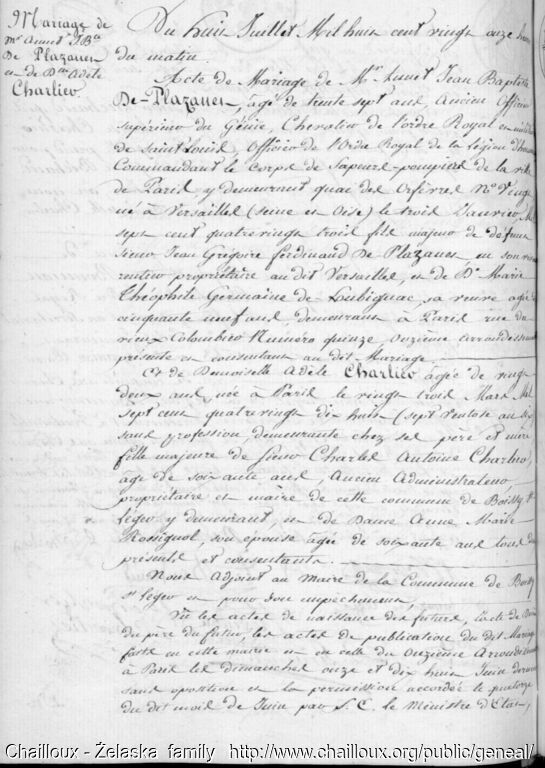 Mariage de
Mr Aunet J. Bte
De Plazanet
et de Dlle Adèle
Charlier
Du huit Juillet Mil huit cent vingt onze heures
du matin.
Acte de Mariage de Mr. Aunet Jean Baptiste
De-Plazanet, agé de trente sept ans, Ancien Officier
supérieur du Génie, Chevalier de l'ordre Royal et militaire
de Saint Louis, Officier de l'Ordre Royal de la Légion d'honneur
Commandant le corps de Sapeurs-pompiers de la ville
de Paris y demeurant quai des Orfèvres No. Vingt
né à Versailles (Seine et Oise) le trois Janvier Mil
sept cent quatre vingt trois fils majeur de défunt
Sieur Jean Grégoire ferdinand De Plazanet, en son vivant
rentier propriétaire au dit Versailles, et de De Marie
Théophile Germaine de-Loubignac, sa veuve agée
cinquante neuf ans, demeurant à Paris rue du
vieux Colombier Numéro quinze onzième arrondissement
présente et consentant au dit Mariage.
Et de Demoiselle Adèle Charlier agée de vingt
deux ans, née à Paris le vingt trois Mars Mil
sept cent quatre vingt dix huit (sept Ventose an six)
sans profession, demeurante chez ses père et mère
fille majeure de Sieur Charles Antoine Charlier,
âgé de soixante ans, Ancien Administrateur,
propriétaire et maire de cette commune de Boissy St.
Léger y demeurant, et de Dame Anne Marie
Rossignol, son épouse âgée de soixante ans tous deux
présents et consentants.
Nous Adjoint au Maire de la Commune de Boissy
St Léger et pour son empêchement,
Vu les actes de naissance des futurs, l'acte de Décès
du père du futur, les actes de publication du dit Mariage
faits en cette mairie et en celle du Onzième Arrondissement
à Paris les dimanches onze et dix huit Juin dernier
sans opposition et la permission accordée le quatorze
du dit mois de Juin par S. E. le Ministre d'Etat,
Chailloux - Želaska family http://www.chailloux.org/public/geneal/